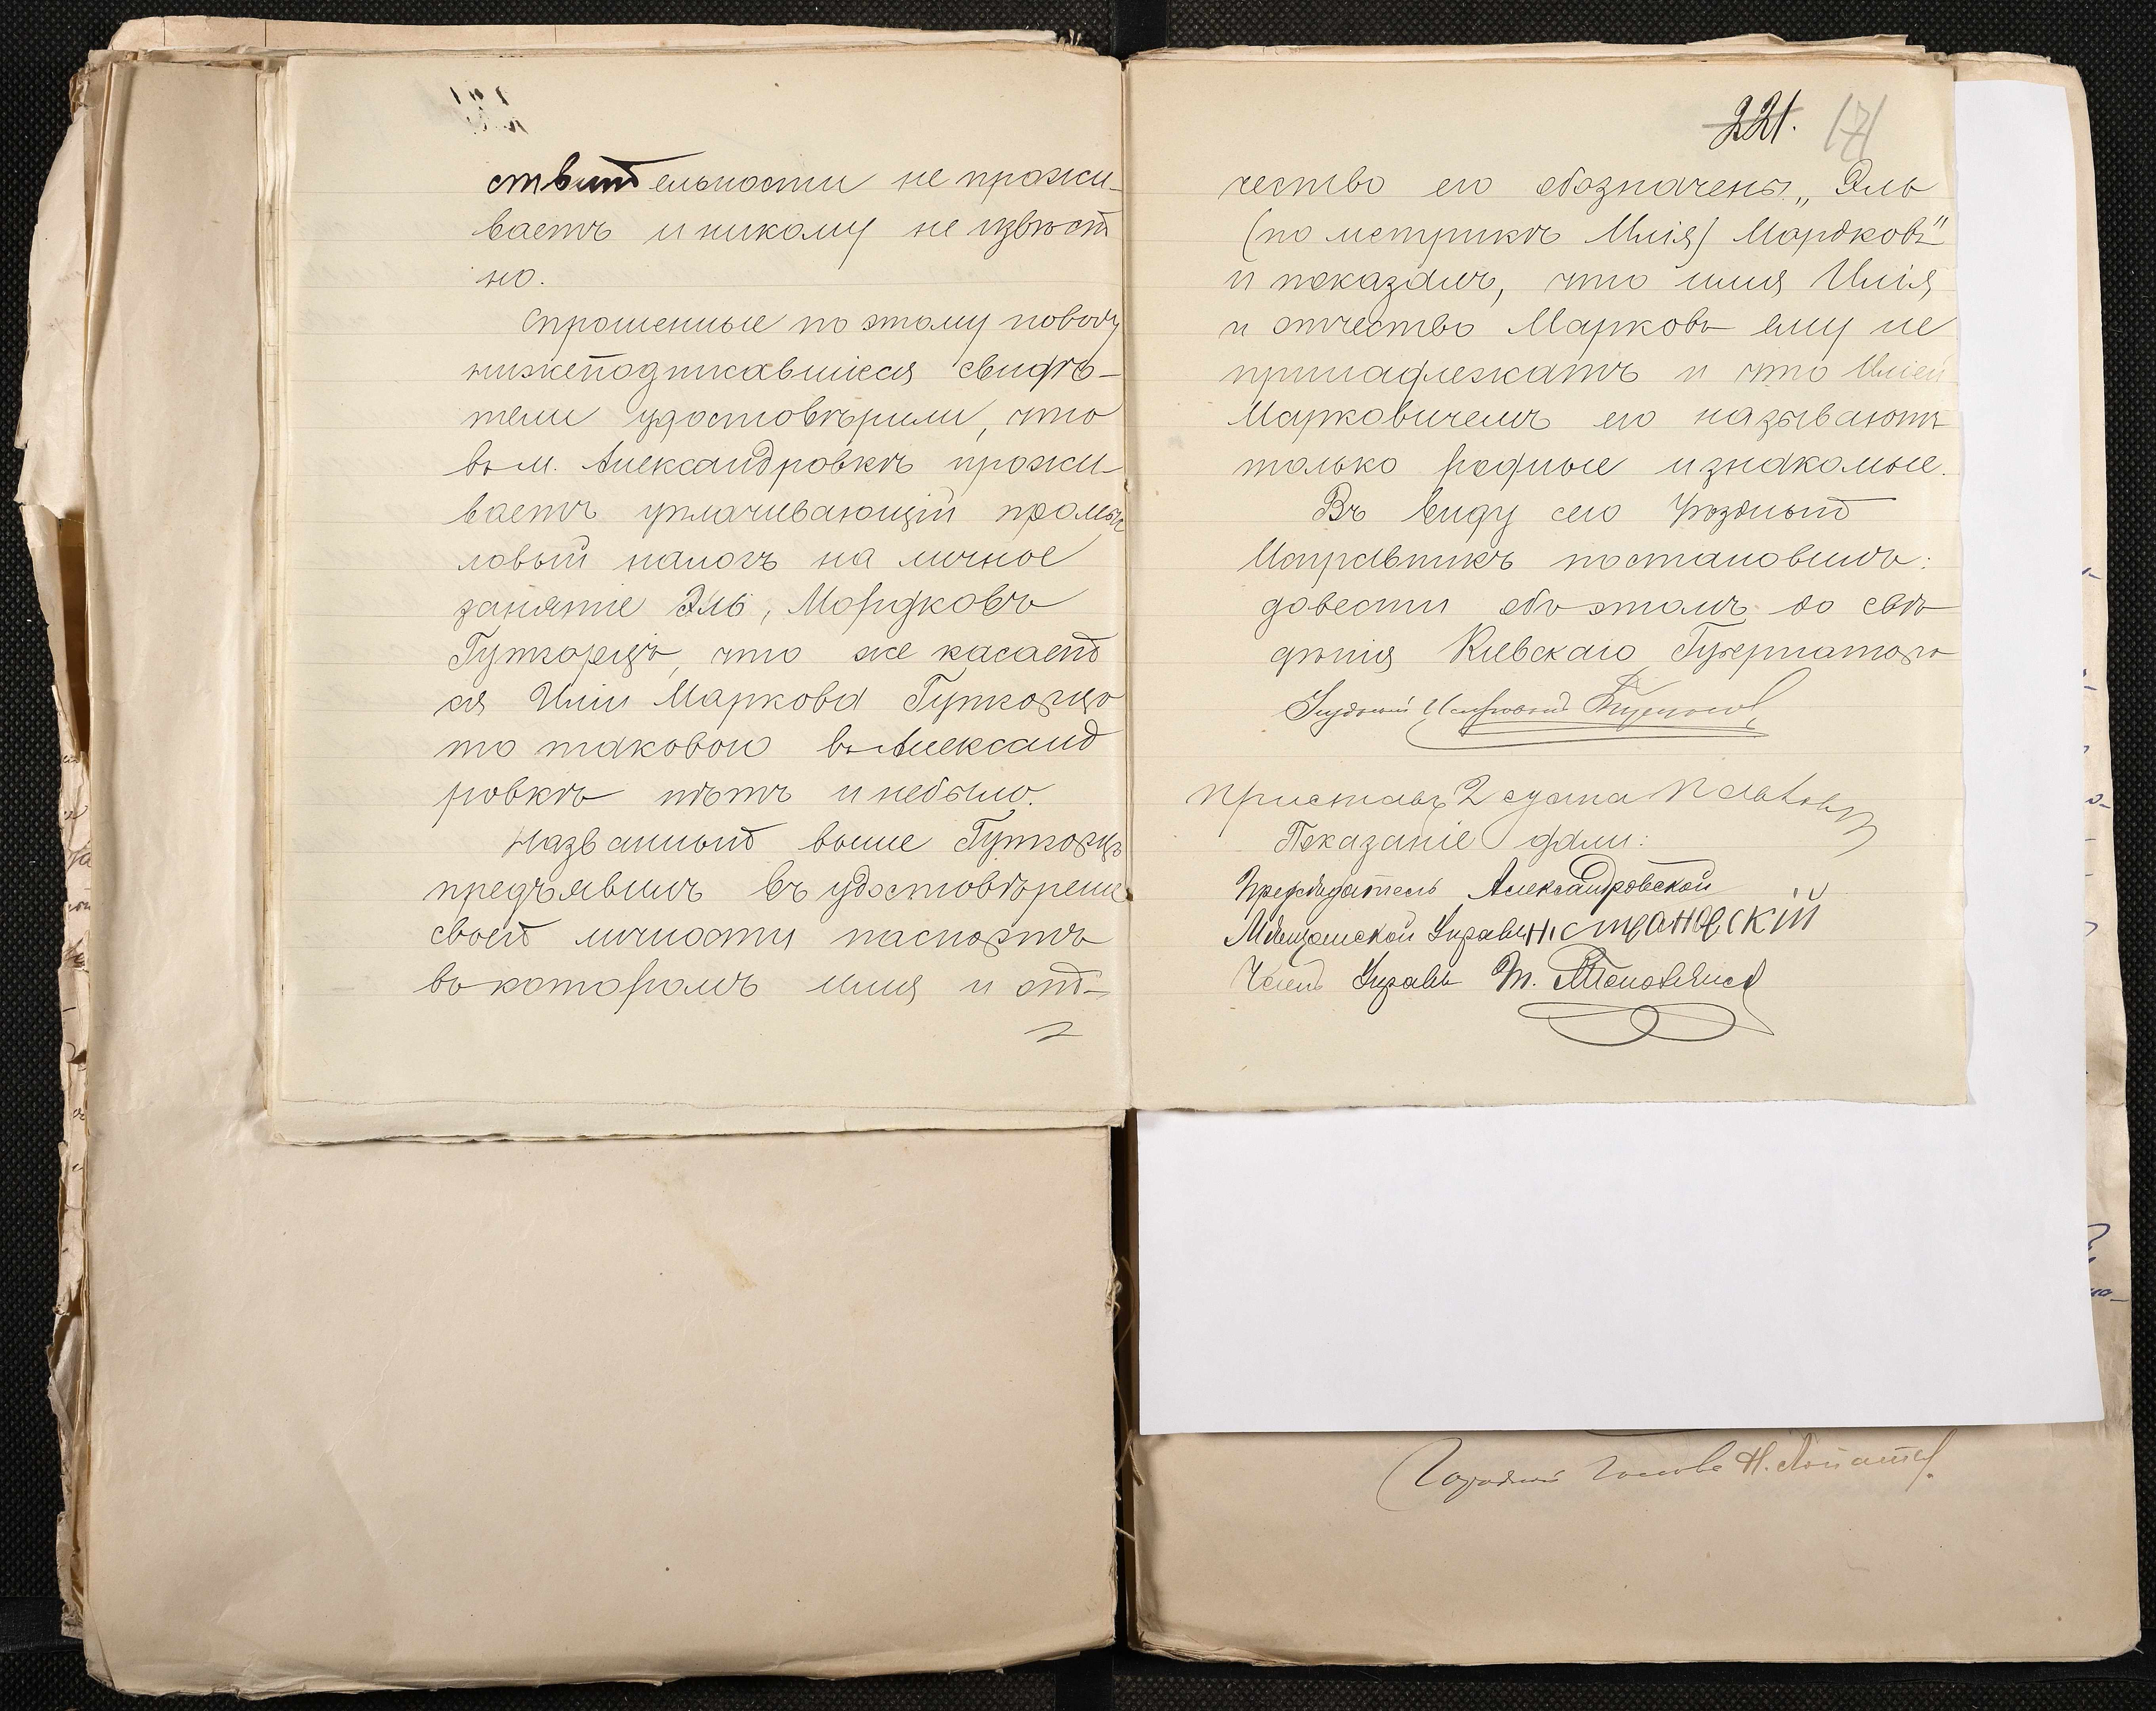 ствительности не прожи-
ваетъ и никому не извѣст
но.
Спрошенные по этому поводу
нижеподписавшіеся свидѣ-
тели удостовѣрили, что
въ м. Александровкѣ прожи-
ваетъ уплачивающій промыс
ловый налогъ на личное
занятіе Эль, Мордковъ
Гуткорцъ, что же касает
ся Иліи Маркова Гуткорцъ
то таковою въ Александ
ровкѣ нѣтъ и небыло.
Названный выше Гуткорцъ
предъявилъ въ удостовѣреніе
своей личности паспортъ
въ которомъ имя и от-
221. 171
чество его обозначены „Эль
(по метрикѣ Илія) Мордковъ"
и показалъ, что имя Илія
и отчество Марковъ ему не
принадлежатъ и что Иліей
Марковичемъ его называютъ
только родные и знакомые.
Въ виду сего Уѣздный
Исправникъ постановилъ:
довести объ этомъ до свѣ
дѣнія Кіевскаго Губернатора
Уѣздный Исправникъ
Приставъ 2 стана
Показаніе дали:
Предсѣдатель Александровской
Мѣщанской Управы
Членъ Управы Т.
Городской Голова Н.